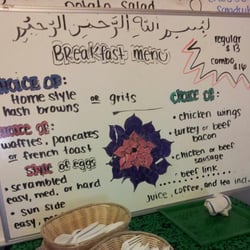 potato salad
لبسم الله الرحمن الرحيم
Breakfast menu
regular
$13
combo
$16
CHOICE OF:
Home style or grits
hash browns
CHOICE OF:
waffles, pancakes
or french toast
STYLE OF eggs
• scrambled
easy, med. or hard
• sun side
easy,
CHOICE OF:
• chicken wings
• turkey or beef
bacon
• chicken or beef
sausage
• beef link
juice, coffee, and tea incl.